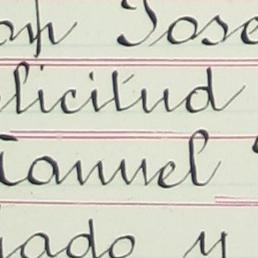 José
licitud
anuel
ado y